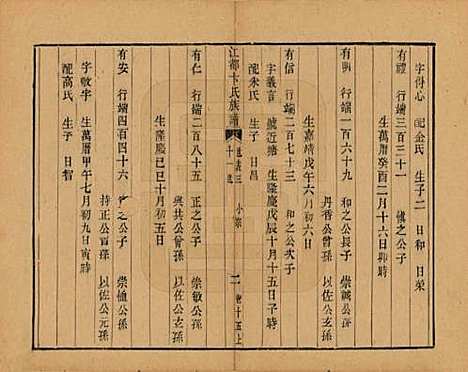 字得心 配金氏 生子二 日和 日榮
有禮 行端三百三十一 慎之公子
生萬曆癸酉二月十六日卯時
有明 行端一百六十九 和之公長子 崇誠公孫
丹香公曾孫 以佐公玄孫
生嘉靖戊午六月初六日
有信 行端二百七十三 和之公次子
字義言 號近塘 生隆慶戊辰十月十五日子時
配朱氏 生子 日昌
江都卞氏族譜 卷十五上
世表三 小宗 二
十一世
有仁 行端二百八十五 正之公子 崇敏公孫
與共公曾孫 以佐公玄孫
生隆慶己巳十月初五日
有安 行端四百四十六 正之公子 崇恤公孫
持正公曾孫 以佐公元孫
字敏宇 生萬曆甲午七月初九日寅時
配高氏 生子 日高